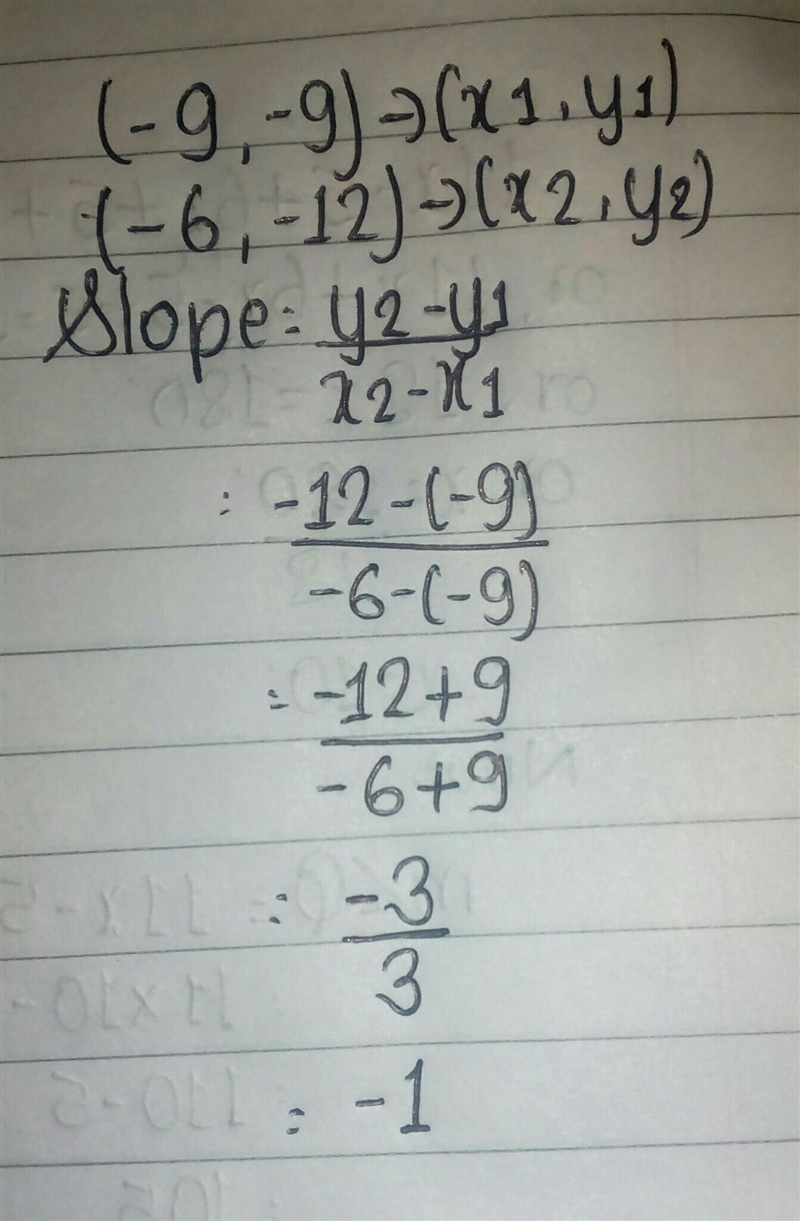 (-9, -9)→(x1, y1)
(-6, -12)→(x2, y2)
Slope = y2-y1
x2-x1
= -12-(-9)
-6-(-9)
= -12+9
-6+9
= -3
3
= -1